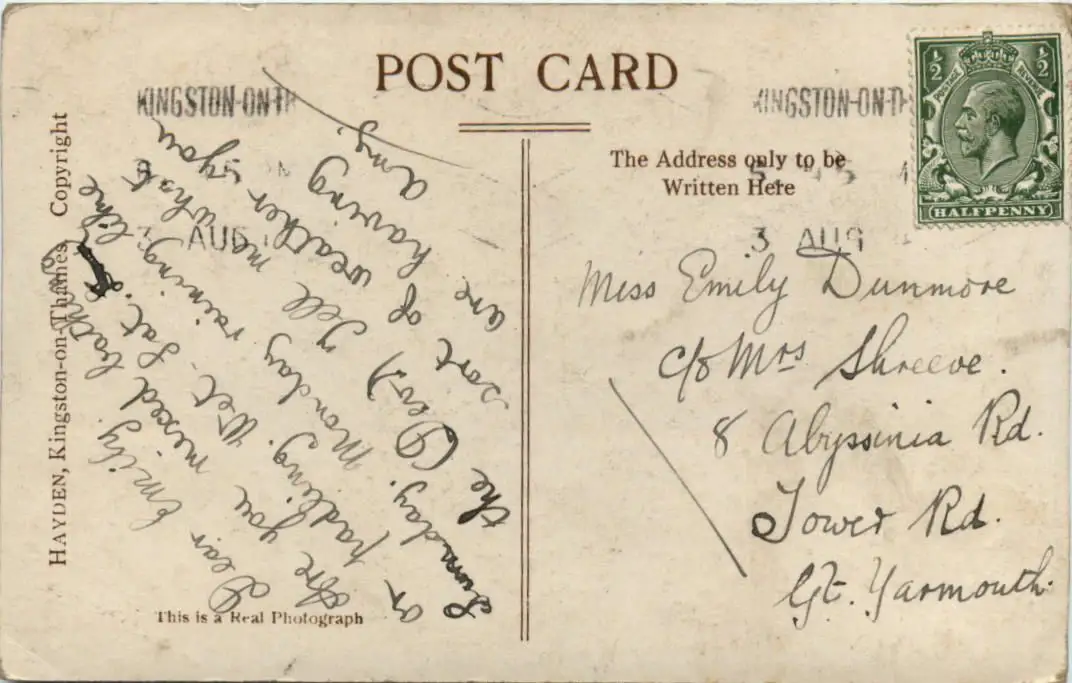 POST CARD
KINGSTON-ON-TH
KINGSTON-ON-T
5 45
3 AUG
3 AUG
The Address only to be
Written Here
½ ½
POSTAGE REVENUE
HALFPENNY
HAYDEN, Kingston-on-Thames. Copyright
This is a Real Photograph
Dear Emily.
Are you mixed bathing
or padling. Wet. Sat.
Sunday. Monday raining like
the (Dev.) Tell me what
sort of weather you
are having
any.
Miss Emily Dunmore
c/o Mrs Shreeve.
8 Abyssinia Rd.
Tower Rd.
Gt. Yarmouth.